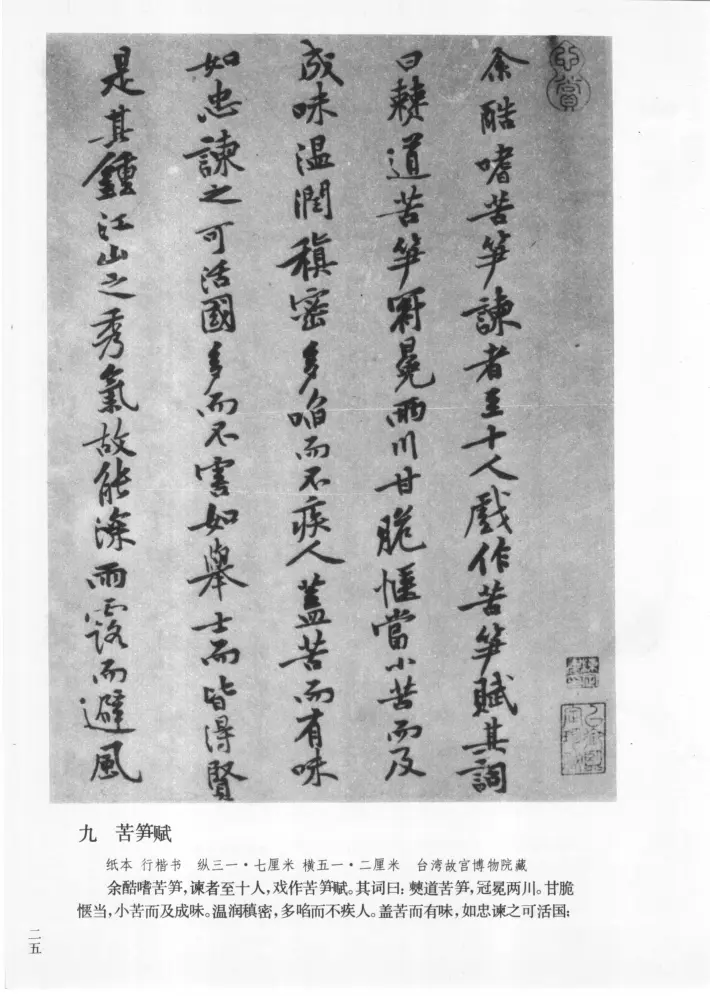 余酷嗜苦笋諫者至十人戲作苦笋賦其詞
曰僰道苦笋冠冕兩川甘脆愜當小苦而及
成味温潤稹密多啗而不疾人蓋苦而有味
如忠諫之可活國多而不害如舉士而皆得賢
是其鍾江山之秀氣故能深雨露而避風
九 苦笋赋
纸本 行楷书 纵三一·七厘米 横五一·二厘米 台湾故宫博物院藏
余酷嗜苦笋,谏者至十人,戏作苦笋赋。其词曰:僰道苦笋,冠冕两川。甘脆
惬当,小苦而及成味。温润稹密,多啗而不疾人。盖苦而有味,如忠谏之可活国;
二五